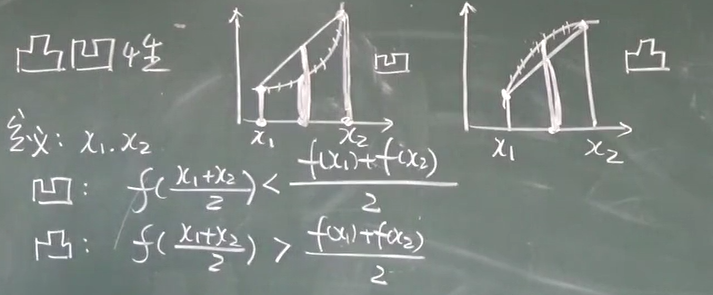 凸凹性
x₁ x₂ 凹
x₁ x₂ 凸
定义: x₁. x₂
凹: f((x₁+x₂)/2) < (f(x₁)+f(x₂))/2
凸: f((x₁+x₂)/2) > (f(x₁)+f(x₂))/2